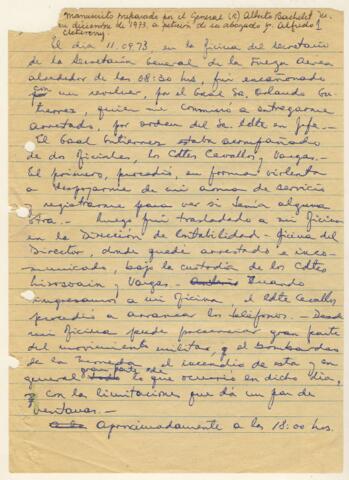 manuscrito preparado por el General (R) Alberto Bachelet M.
en diciembre de 1973, a petición de su abogado Jr. Alfredo
Etcheberry.
El día 11.09.73, en la oficina del Secretario
de la Secretaría General de la Fuerza Aérea
alrededor de las 08:30 hrs, fui encañonado
con un revolver, por el Gral Sr. Orlando Gu-
tierrez, quien me comunicó a entregarme
arrestado, por orden del Sr. Cdte en Jefe.-
El Gral Gutierrez estaba acompañado
de dos oficiales, los Cdtes Cevallos y Vargas.-
El primero, procedió en forma violenta
a despojarme de mi arma de servicio
y registrarme para ver si tenía alguna
otra.- Luego fui trasladado a mi oficina
en la Dirección de Contabilidad - Oficina del
Director, donde quedé arrestado e inco-
municado, bajo la custodia de los Cdtes
y Vargas.- Cuando
ingresamos a mi oficina, el Cdte Cevallos
procedió a arrancar los teléfonos.- Desde
mi oficina pude presenciar gran parte
del movimiento militar, y el bombardeo
de la Moneda, el incendio de esta, y en
general gran parte de lo que ocurrió en dicho día,
y con la limitaciones que da un par de
ventanas.-
Aproximadamente a las 18:00 hrs.